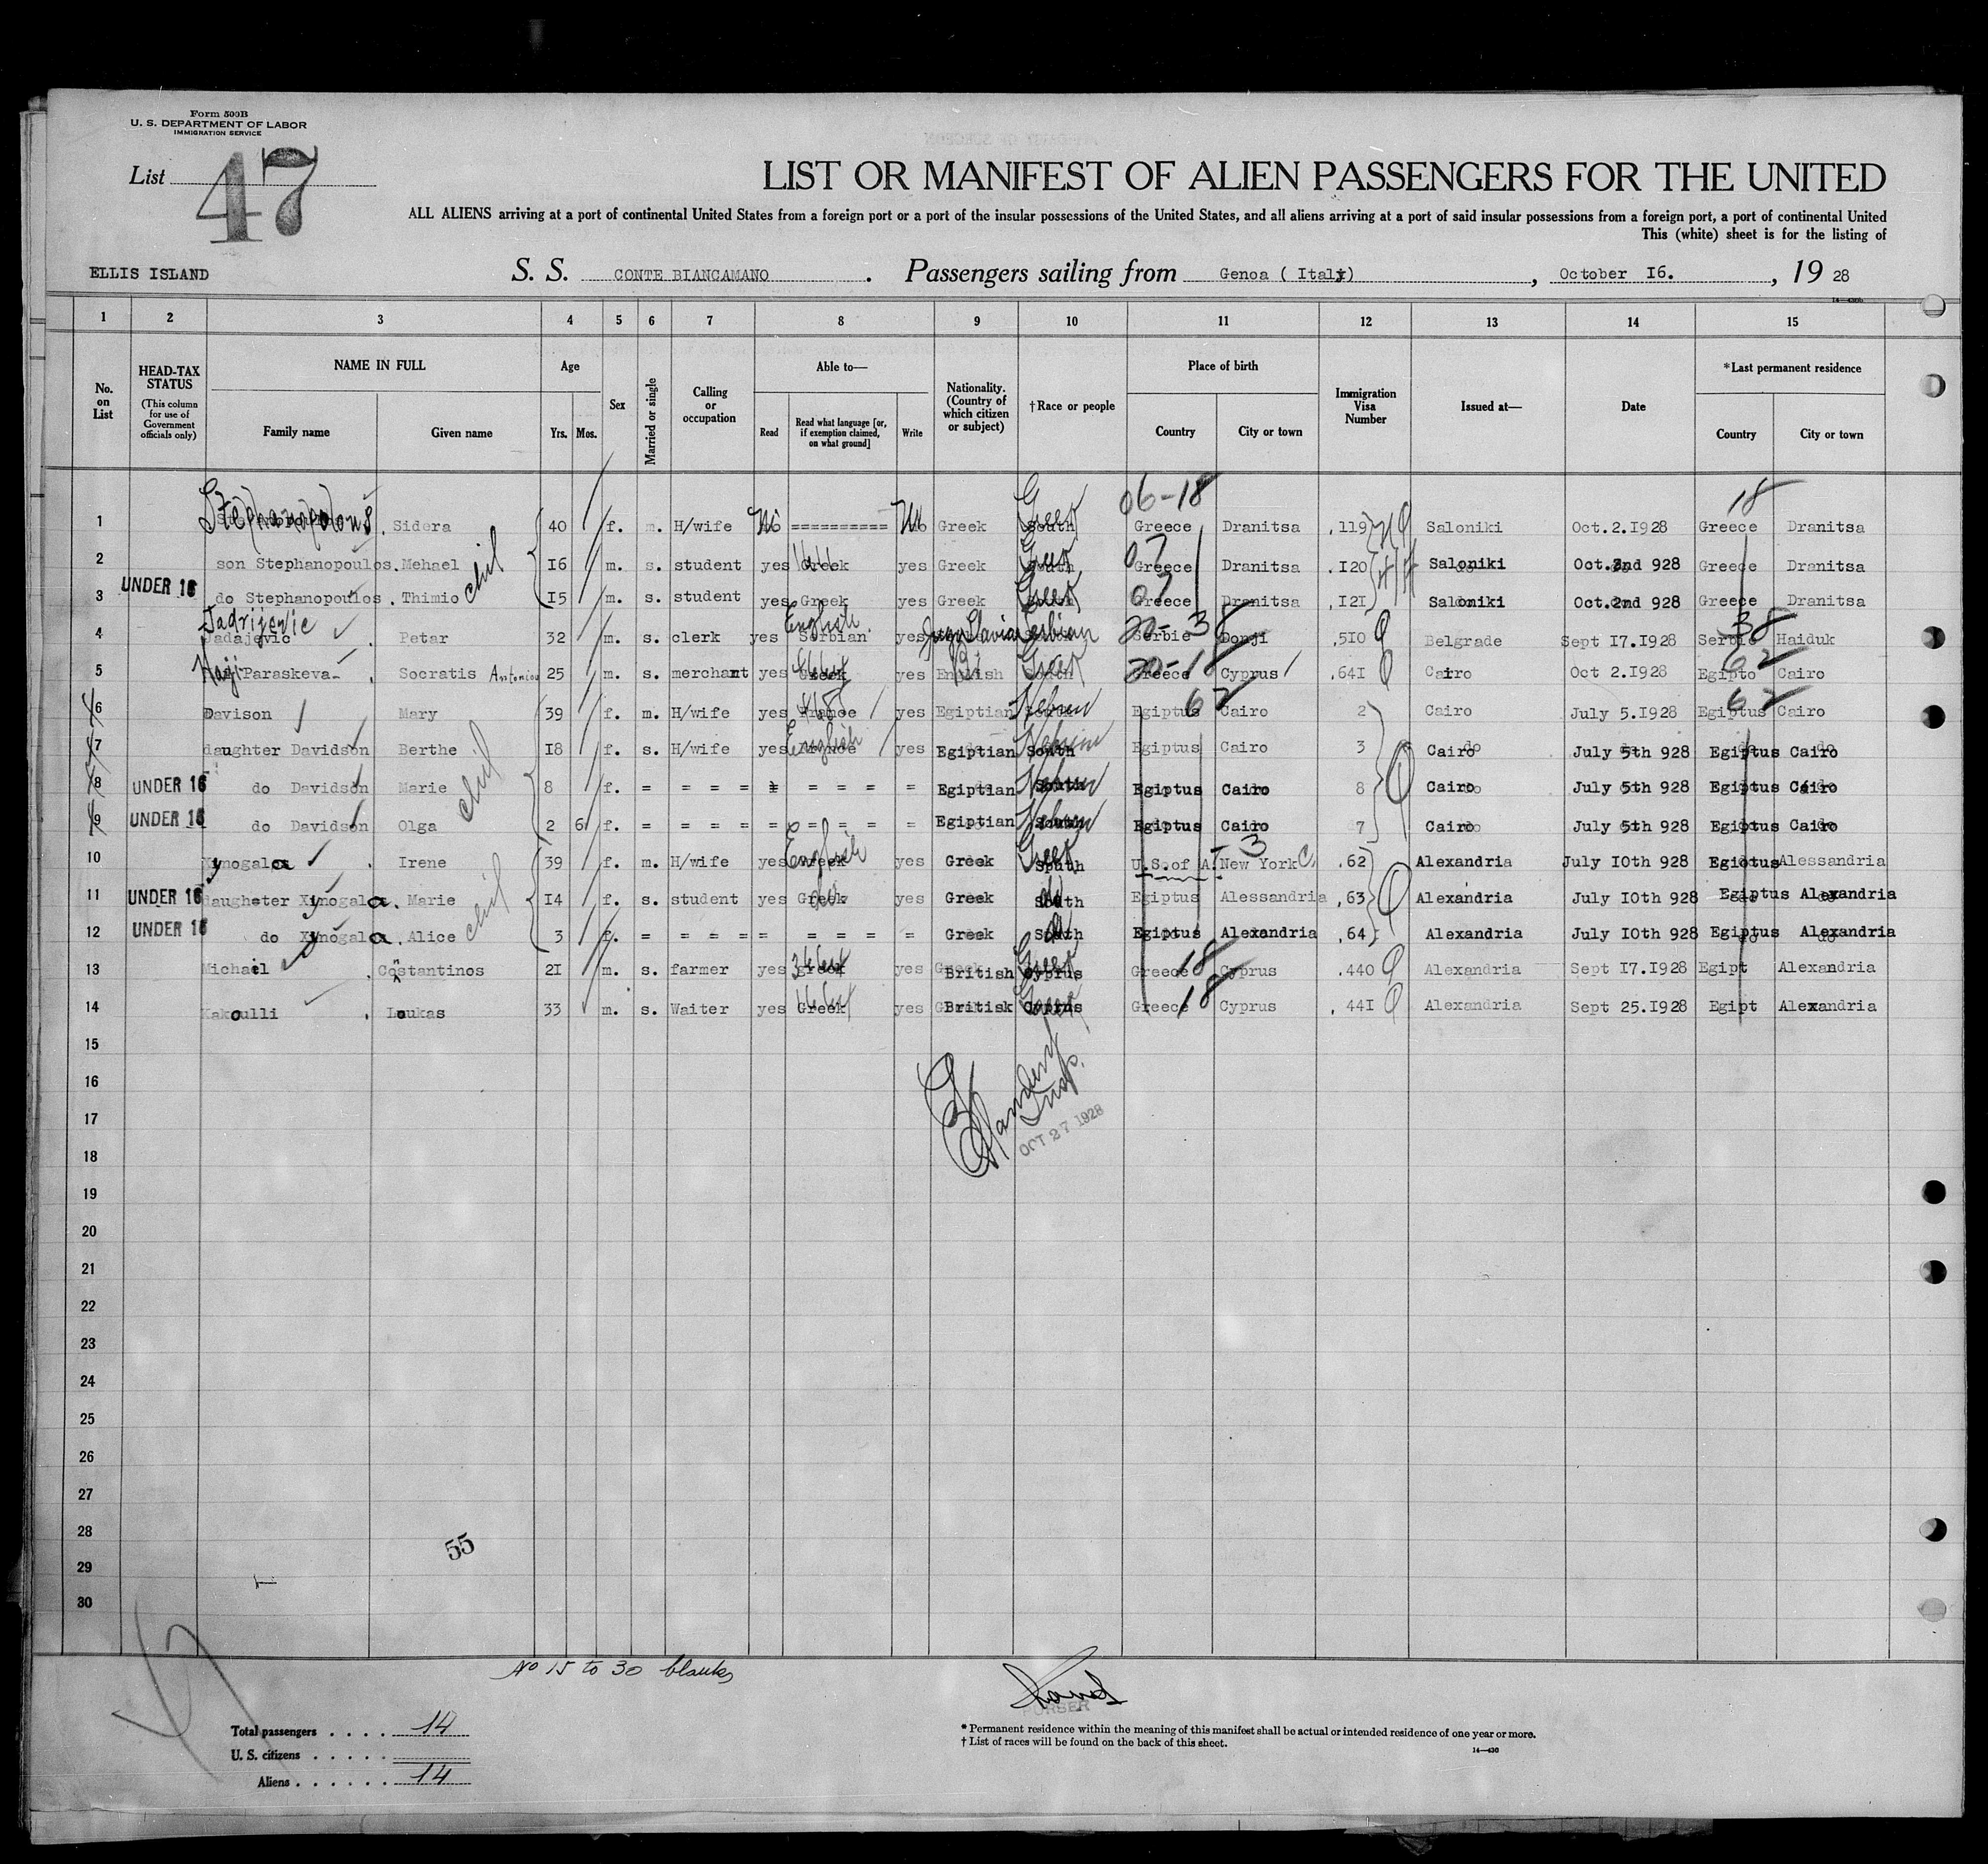 Form 500B
U. S. DEPARTMENT OF LABOR
IMMIGRATION SERVICE
List 47
LIST OR MANIFEST OF ALIEN PASSENGERS FOR THE UNITED
ALL ALIENS arriving at a port of continental United States from a foreign port or a port of the insular possessions of the United States, and all aliens arriving at a port of said insular possessions from a foreign port, a port of continental United
This (white) sheet is for the listing of
ELLIS ISLAND S. S. CONTE BIANCAMANO. Passengers sailing from Genoa ( Italy), October 16. , 19 28
1 2 3 4 5 6 7 8 9 10 11 12 13 14 15
No. on List
HEAD-TAX STATUS (This column for use of Government officials only)
NAME IN FULL Family name Given name
Age Yrs. Mos.
Sex
Married or single
Calling or occupation
Able to— Read Read what language [or, if exemption claimed, on what ground] Write
Nationality. (Country of which citizen or subject)
†Race or people
Place of birth Country City or town
Immigration Visa Number
Issued at—
Date
*Last permanent residence Country City or town
06-18 18
1 Stephanopoulous. Sidera 40 f. m. H/wife No ========== No Greek Greek Greece Dranitsa ,119 Saloniki Oct.2.1928 Greece Dranitsa
2 son Stephanopoulos. Mehael 16 m. s. student yes Greek yes Greek Greek 07 Greece Dranitsa .120 Saloniki Oct.2nd 928 Greece Dranitsa
3 UNDER 16 do Stephanopoulos . Thimio chil 15 m. s. student yes Greek yes Greek Greek 07 Greece Dranitsa ,121 Saloniki Oct.2nd 928 Greece Dranitsa
4 Jadrijevic Jadajevic . Petar 32 m. s. clerk yes English Serbian yes Jugo Slavian Serbian 20-38 Serbie Donji ,510 Belgrade Sept 17.1928 38 Serbie Haiduk
5 Haji Paraskeva . Socratis Antoniou 25 m. s. merchant yes Greek yes English Greek 20-18 Greece Cyprus ,641 Cairo Oct 2.1928 62 Egipto Cairo
6 Davison Mary 39 f. m. H/wife yes France yes Egiptian Hebrew 62 Egiptus Cairo 2 Cairo July 5.1928 62 Egiptus Cairo
7 daughter Davidson Berthe 18 f. s. H/wife yes English yes Egiptian South Hebrew Egiptus Cairo 3 Cairo July 5th 928 Egiptus Cairo
8 UNDER 16 do Davidson Marie chil 8 f. = = = = = = = = = Egiptian South Hebrew Egiptus Cairo 8 Cairo July 5th 928 Egiptus Cairo
9 UNDER 16 do Davidson Olga 2 6 f. = = = = = = = = = Egiptian South Hebrew Egiptus Cairo 7 Cairo July 5th 928 Egiptus Cairo
10 Xynogala . Irene 39 f. m. H/wife yes English Greek yes Greek Greek South U.S.of A. 3 New York ,62 Alexandria July 10th 928 Egiptus Alessandria
11 UNDER 16 daugheter Xynogala. Marie 14 f. s. student yes Greek yes Greek South Egiptus Alessandria ,63 Alexandria July 10th 928 Egiptus Alexandria
12 UNDER 16 do Xynogala . Alice chil 3 f. = = = = = = = = = Greek South Egiptus Alexandria ,64 Alexandria July 10th 928 Egiptus Alexandria
13 Michael . Costantinos 21 m. s. farmer yes greek yes British Cyprus Greek Greece 18 Cyprus .440 Alexandria Sept 17.1928 Egipt Alexandria
14 Kakoulli . Loukas 33 m. s. Waiter yes Greek yes Britisk Cyprus Greece 18 Cyprus , 441 Alexandria Sept 25.1928 Egipt Alexandria
15
16
17
Insp.
OCT 27 1928
18
19
20
21
22
23
24
25
26
27
28
55
29
30
No 15 to 30 blanks
PURSER
Total passengers . . . . 14
U. S. citizens . . . . .
Aliens . . . . . . 14
* Permanent residence within the meaning of this manifest shall be actual or intended residence of one year or more.
† List of races will be found on the back of this sheet.
14—430